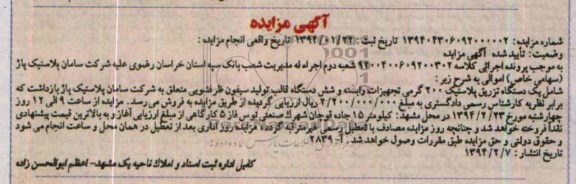 آگهی مزایده
شماره مزایده: ۱۳۹۴۰۴۳۰۶۰۹۲۰۰۰۰۰۲ تاریخ ثبت: ۱۳۹۴/۰۱/۲۲ تاریخ واقعی انجام مزایده:
وضعیت: تأیید شده آگهی مزایده
به موجب پرونده اجرائی کلاسه ۹۲۰۰۴۰۰۶۰۹۲۰۰۳۰۲ شعبه دوم اجرا، له مدیریت شعب بانک سپه استان خراسان رضوی علیه شرکت سامان پلاستیک پاژ
(سهامی خاص) اموالی به شرح زیر:
شامل یک دستگاه تزریق پلاستیک ۲۰۰ گرمی تجهیزات وابسته و شش دستگاه قالب تولید سیفون ظرفشویی متعلق به شرکت سامان پلاستیک پاژ بازداشت که
برابر نظریه کارشناس رسمی دادگستری به مبلغ ۴/۲۰۰/۰۰۰/۰۰۰ ریال ارزیابی گردیده از طریق مزایده به فروش می رسد. مزایده از ساعت ۹ الی ۱۲ روز
چهارشنبه مورخ ۱۳۹۴/۲/۲۳ در محل مشهد: کیلومتر ۱۵ جاده قوچان شهرک صنعتی توس فاز ۵ کارگاهی از مبلغ ارزیابی آغاز و به بالاترین قیمت پیشنهادی
نقداً فروخته خواهد شد و چنانچه روز مزایده مصادف با تعطیل رسمی غیرمترقبه گردد، مزایده روز اداری بعد از تعطیل در همان محل و ساعت انجام می شود
و حقوق دولتی و حق مزایده طبق مقررات وصول خواهد شد. آ-۲۸۳۹
تاریخ انتشار: ۱۳۹۴/۲/۷
کفیل اداره ثبت اسناد و املاک ناحیه یک مشهد- اعظم ابوالحسن زاده